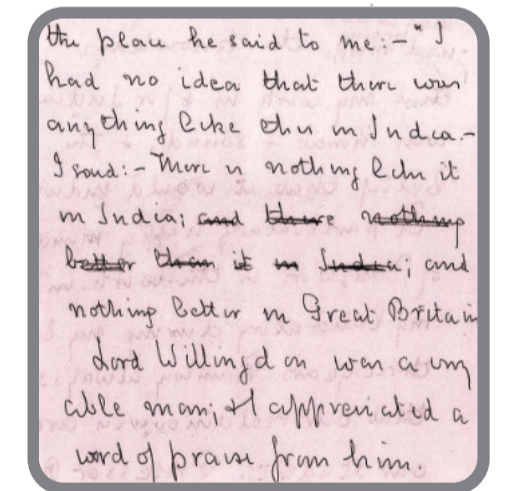 the place he said to me:- "I
had no idea that there was
anything like this in India.-
I said:- There is nothing like it
in India; and there nothing
better than it in India; and
nothing better in Great Britain
Lord Willingdon was a very
able man; & I appreciated a
word of praise from him.